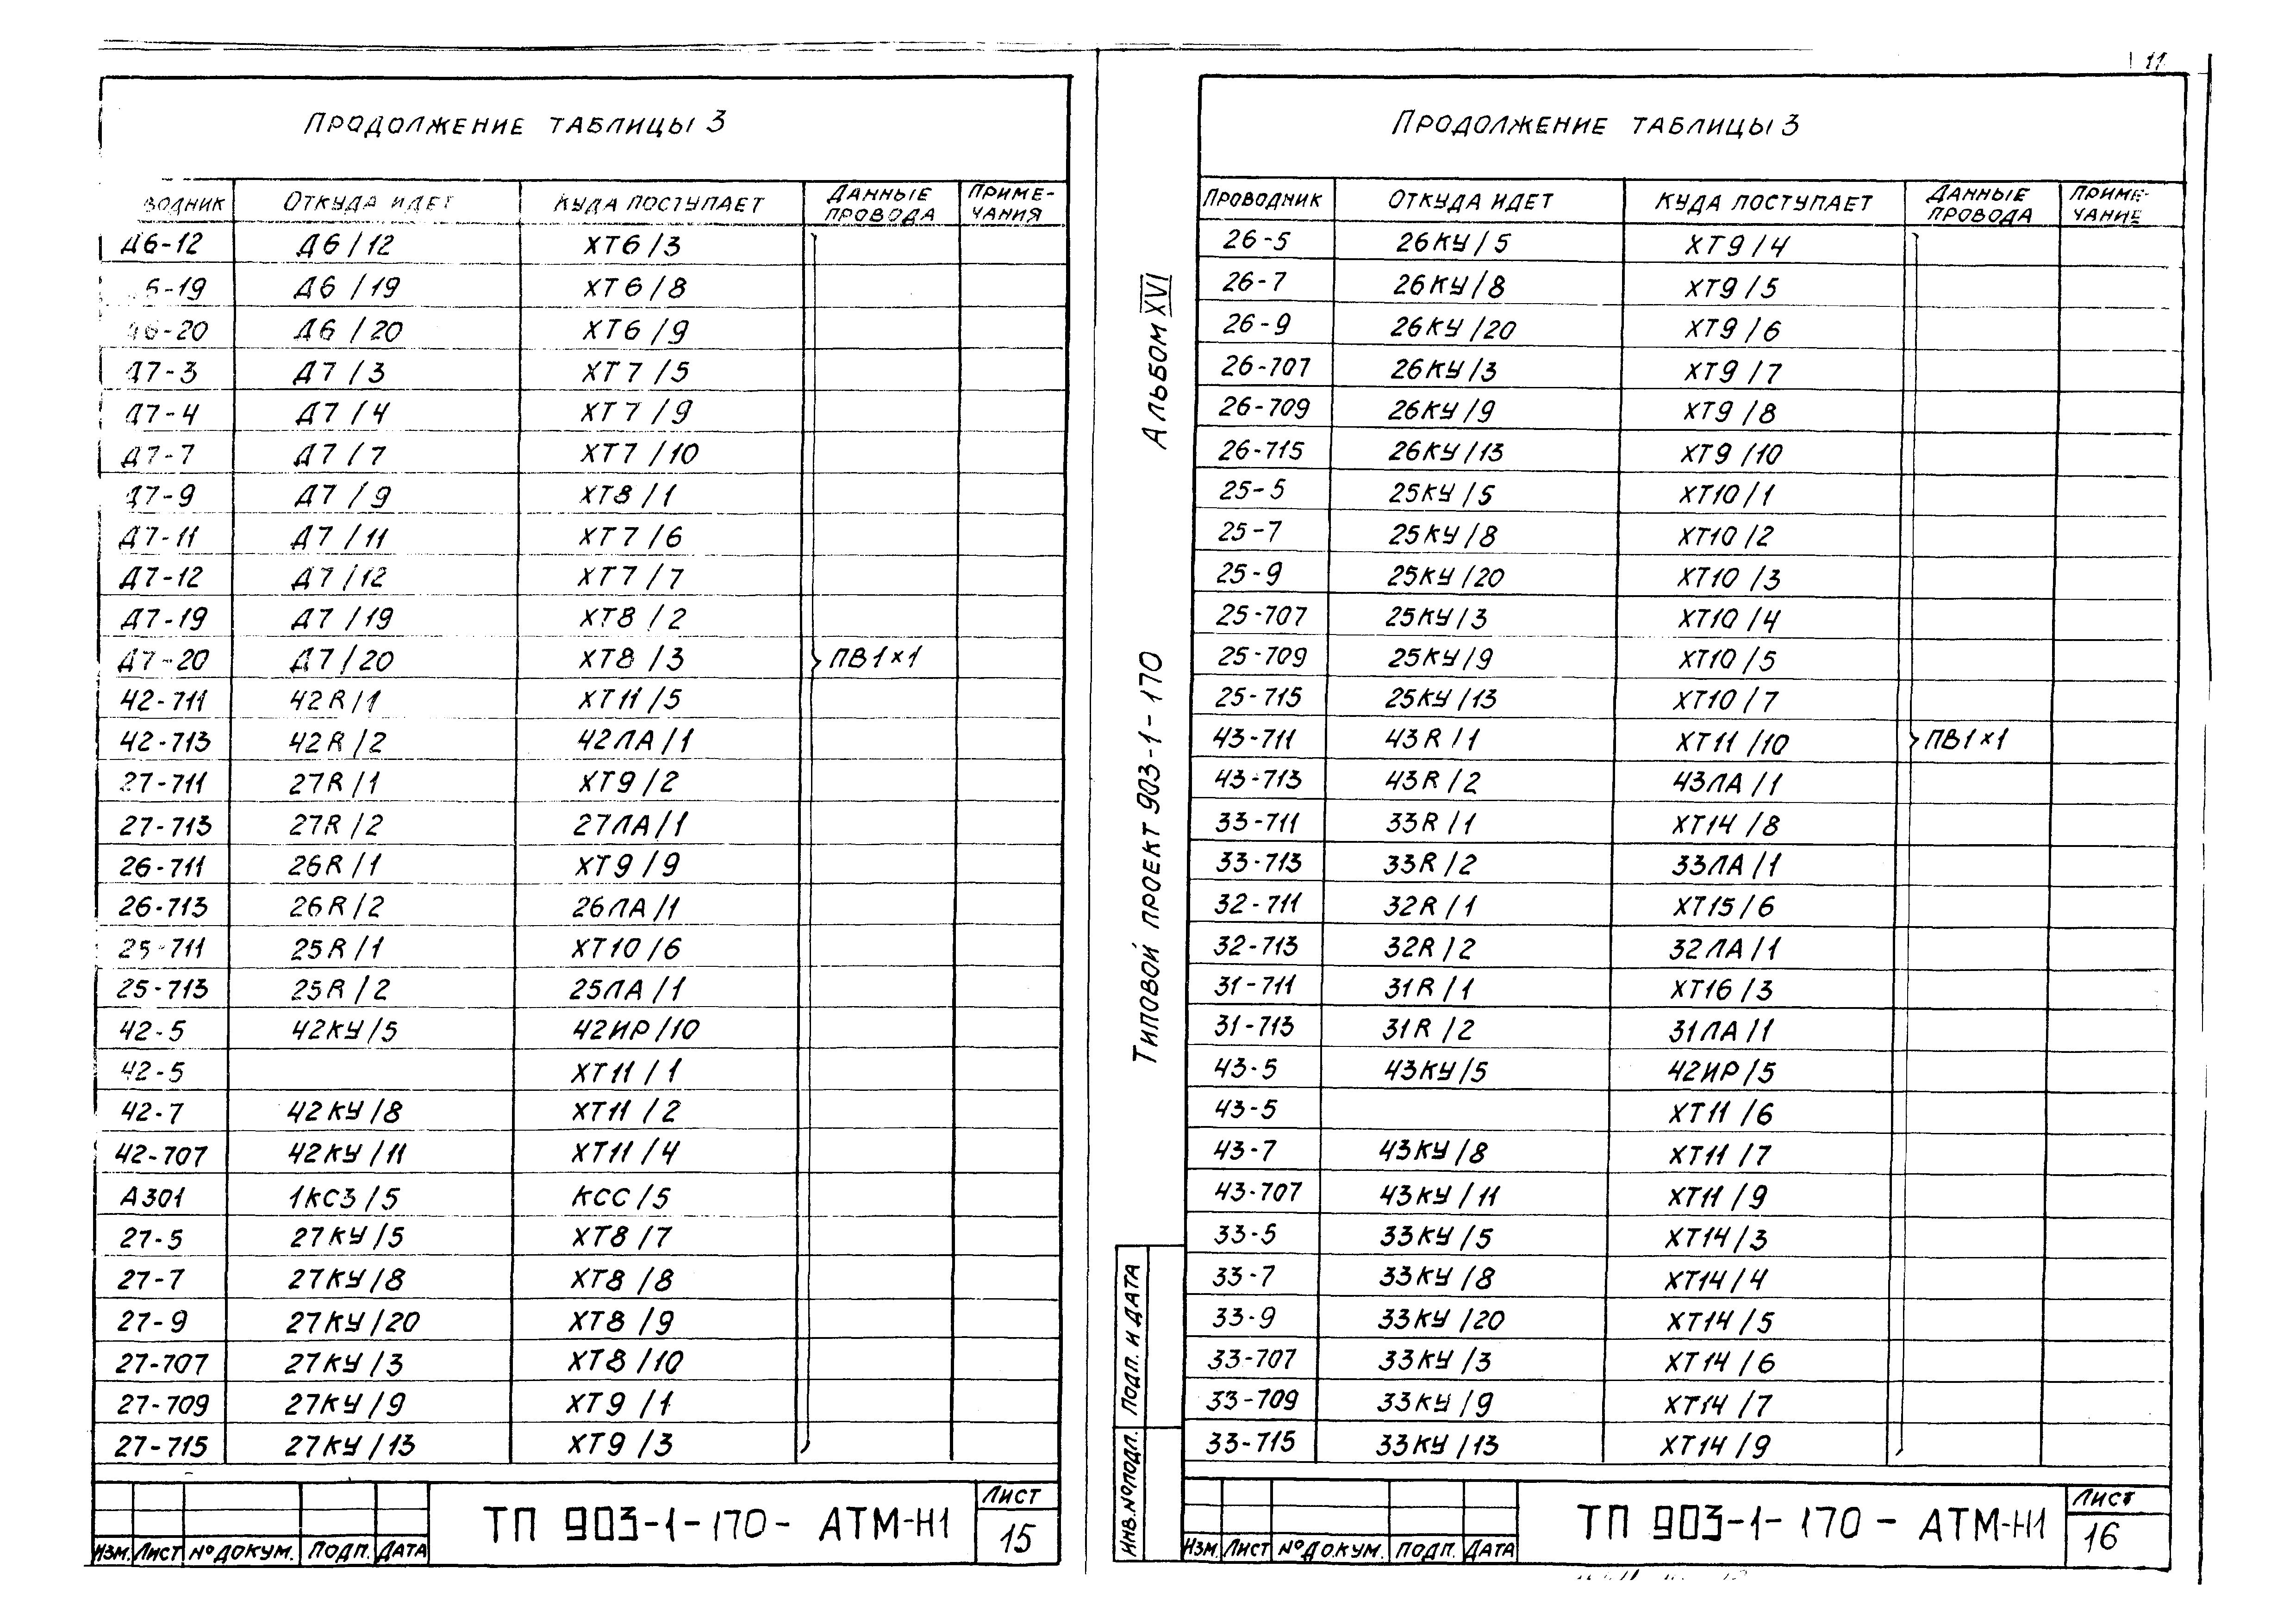 11
ПРОДОЛЖЕНИЕ ТАБЛИЦЫ 3
ВОДНИК ОТКУДА ИДЕТ КУДА ПОСТУПАЕТ ДАННЫЕ ПРОВОДА ПРИМЕ-ЧАНИЯ
Д6-12 Д6/12 ХТ6/3
6-19 Д6/19 ХТ6/8
Д6-20 Д6/20 ХТ6/9
Д7-3 Д7/3 ХТ7/5
Д7-4 Д7/4 ХТ7/9
Д7-7 Д7/7 ХТ7/10
Д7-9 Д7/9 ХТ8/1
Д7-11 Д7/11 ХТ7/6
Д7-12 Д7/12 ХТ7/7
Д7-19 Д7/19 ХТ8/2
Д7-20 Д7/20 ХТ8/3 ПВ1×1
42-711 42R/1 ХТ11/5
42-713 42R/2 42ЛА/1
27-711 27R/1 ХТ9/2
27-713 27R/2 27ЛА/1
26-711 26R/1 ХТ9/9
26-713 26R/2 26ЛА/1
25-711 25R/1 ХТ10/6
25-713 25R/2 25ЛА/1
42-5 42КУ/5 42ИР/10
42-5 ХТ11/1
42-7 42КУ/8 ХТ11/2
42-707 42КУ/11 ХТ11/4
А301 1КС3/5 КСС/5
27-5 27КУ/5 ХТ8/7
27-7 27КУ/8 ХТ8/8
27-9 27КУ/20 ХТ8/9
27-707 27КУ/3 ХТ8/10
27-709 27КУ/9 ХТ9/1
27-715 27КУ/13 ХТ9/3
ИЗМ. ЛИСТ №ДОКУМ. ПОДП. ДАТА
ТП 903-1-170- АТМ-Н1
ЛИСТ
15
АЛЬБОМ XVI
ТИПОВОЙ ПРОЕКТ 903-1-170
ПОДП. И ДАТА
ИНВ.№ПОДЛ.
ПРОДОЛЖЕНИЕ ТАБЛИЦЫ 3
ПРОВОДНИК ОТКУДА ИДЕТ КУДА ПОСТУПАЕТ ДАННЫЕ ПРОВОДА ПРИМЕ-ЧАНИЕ
26-5 26КУ/5 ХТ9/4
26-7 26КУ/8 ХТ9/5
26-9 26КУ/20 ХТ9/6
26-707 26КУ/3 ХТ9/7
26-709 26КУ/9 ХТ9/8
26-715 26КУ/13 ХТ9/10
25-5 25КУ/5 ХТ10/1
25-7 25КУ/8 ХТ10/2
25-9 25КУ/20 ХТ10/3
25-707 25КУ/3 ХТ10/4
25-709 25КУ/9 ХТ10/5
25-715 25КУ/13 ХТ10/7
43-711 43R/1 ХТ11/10 ПВ1×1
43-713 43R/2 43ЛА/1
33-711 33R/1 ХТ14/8
33-713 33R/2 33ЛА/1
32-711 32R/1 ХТ15/6
32-713 32R/2 32ЛА/1
31-711 31R/1 ХТ16/3
31-713 31R/2 31ЛА/1
43-5 43КУ/5 42ИР/5
43-5 ХТ11/6
43-7 43КУ/8 ХТ11/7
43-707 43КУ/11 ХТ11/9
33-5 33КУ/5 ХТ14/3
33-7 33КУ/8 ХТ14/4
33-9 33КУ/20 ХТ14/5
33-707 33КУ/3 ХТ14/6
33-709 33КУ/9 ХТ14/7
33-715 33КУ/13 ХТ14/9
ИЗМ. ЛИСТ №ДОКУМ. ПОДП. ДАТА
ТП 903-1-170- АТМ-Н1
ЛИСТ
16